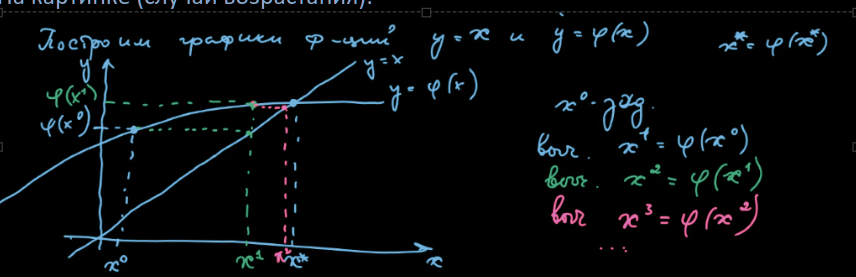 На картинке (случай возрастания).
Построим графики ф-ций y = x и y = φ(x) x* = φ(x*)
y
y = x
φ(x¹)
y = φ(x)
φ(x⁰)
x⁰ - зад.
выч. x¹ = φ(x⁰)
выч. x² = φ(x¹)
выч x³ = φ(x²)
...
x⁰ x¹ x² x* x